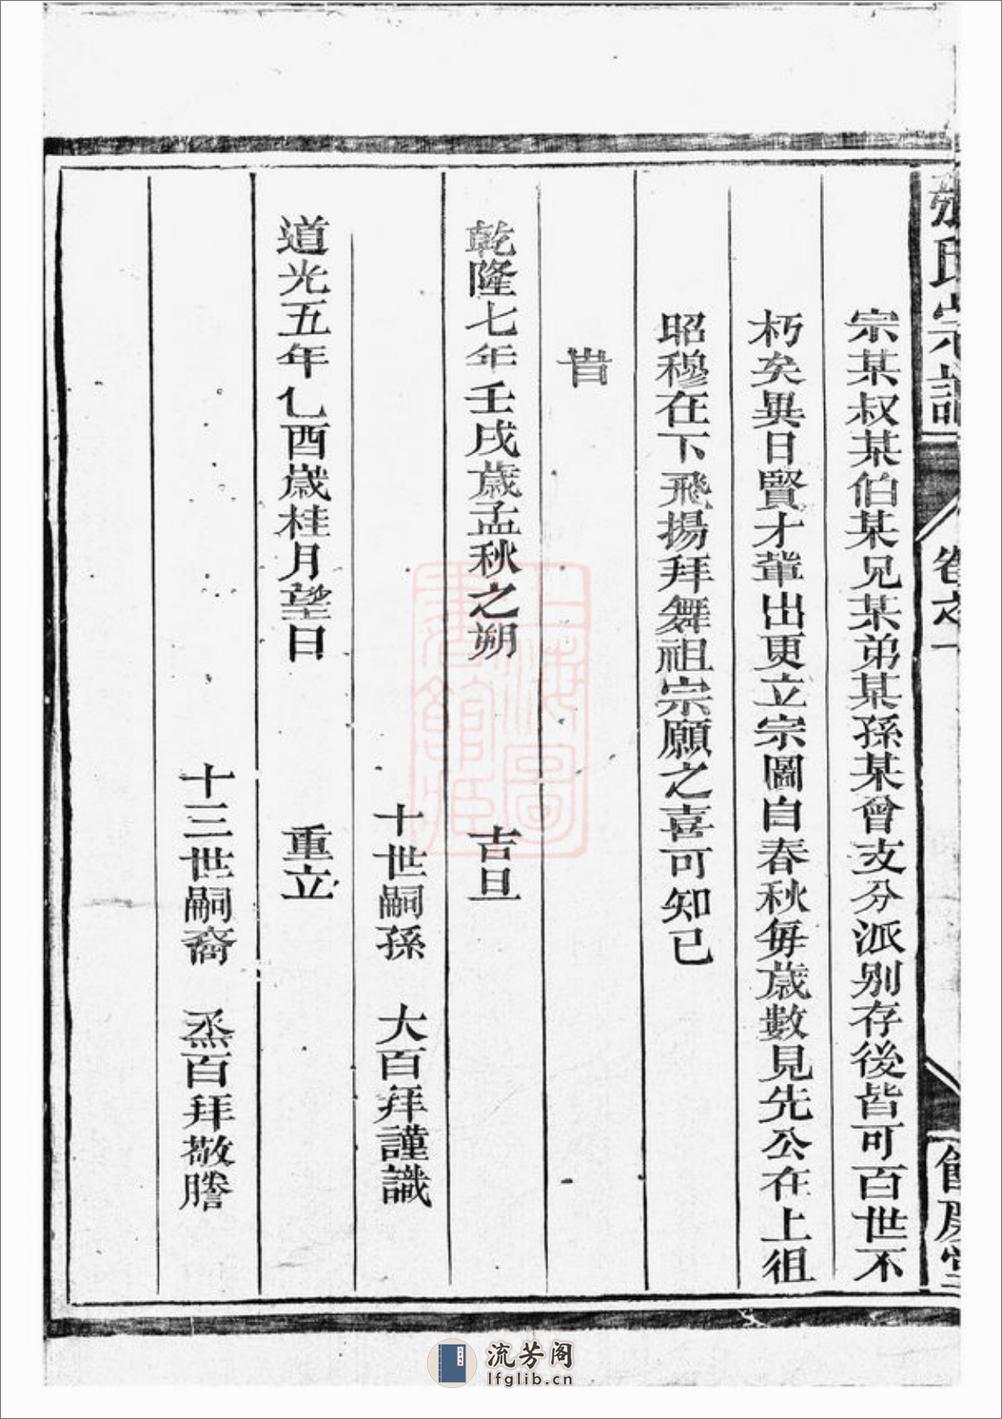 張氏宗譜 卷之一
宗某叔某伯某兄某弟某孫某曾支分派別存後皆可百世不
朽矣異日賢才輩出更立宗圖自春秋每歲數見先公在上徂
昭穆在下飛揚拜舞祖宗願之喜可知已
旹
乾隆七年壬戌歲孟秋之朔 吉旦
十世嗣孫 大百拜謹識
道光五年乙酉歲桂月望日 重立
十三世嗣裔 烝百拜敬謄
上海圖書館藏
流芳阁
lfglib.cn